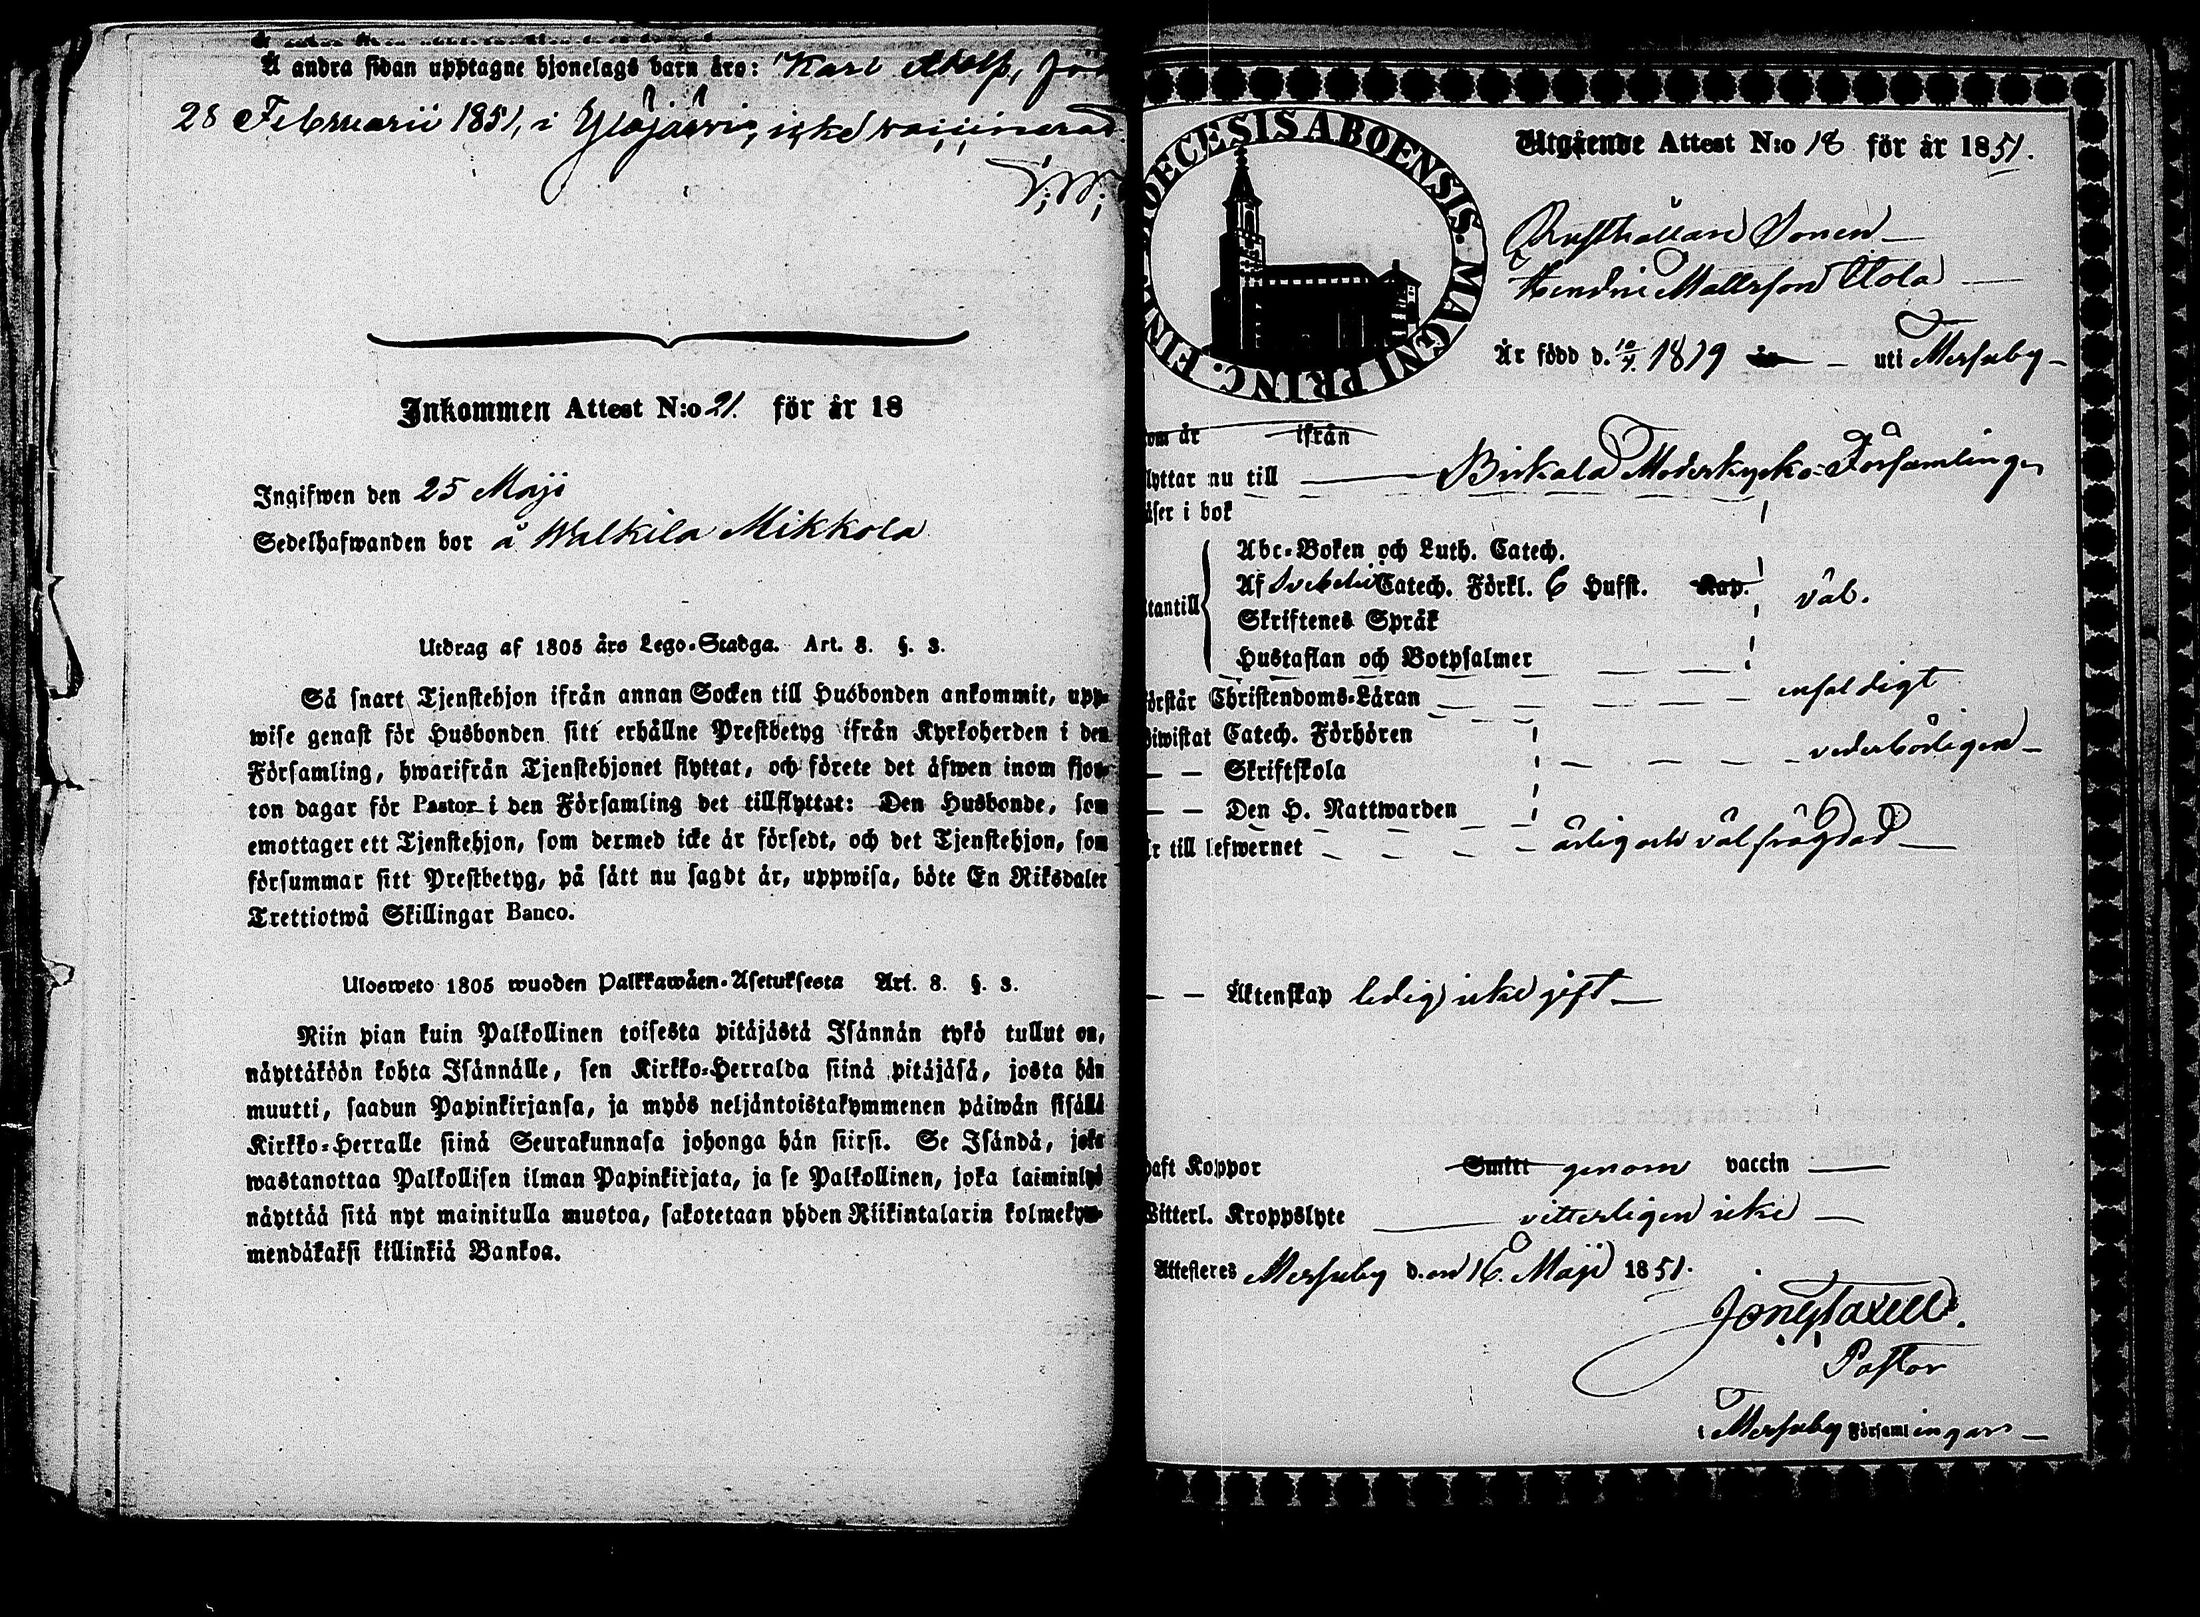 Å andra sidan upptagne hjonelags barn äro: Karl Adolf,
28 Februarii 1851, i Ylöjärvi, icke vaccinerad
Inkommen Attest N:o 21. för år 18
Ingifwen den 25 Maji
Sedelhafwanden bor å Walkila Mikkola
Utdrag af 1805 års Lego-Stadga. Art. 8. §. 3.
Så snart Tjenstehjon ifrån annan Socken till Husbonden ankommit, upp-
wise genast för Husbonden sitt erhållne Prestbetyg ifrån Kyrkoherden i den
Församling, hwarifrån Tjenstehjonet flyttat, och förete det äfwen inom fjor-
ton dagar för Pastor i den Församling det tillflyttat: Den Husbonde, som
emottager ett Tjenstehjon, som dermed icke är försedt, och det Tjenstehjon, som
försummar sitt Prestbetyg, på sätt nu sagdt är, uppwisa, böte En Riksdaler
Trettiotwå Skillingar Banco.
Ulosweto 1805 wuoden Palkkawäen-Asetuksesta Art. 8. §. 3.
Niin pian kuin Palkollinen toisesta pitäjästä Isännän tykö tullut on,
näyttäköön kohta Isännälle, sen Kirkko-Herralda siinä pitäjäsä, josta hän
muutti, saadun Papinkirjansa, ja myös neljäntoistakymmenen päiwän sisällä
Kirkko-Herralle siinä Seurakunnasa johonga hän siirsi. Se Isändä, joka
wastanottaa Palkollisen ilman Papinkirjata, ja se Palkollinen, joka laiminlyö
näyttää sitä nyt mainitulla muotoa, sakotetaan yhden Riikintalarin kolmekym-
mendäkaksi killinkiä Bankoa.
DIOECESIS ABOENSIS. MAGNI PRINC. FINL.
Utgående Attest N:o 18 för år 1851.
Rusthållare Sonen
Hendric Mattsson Uola
Är född d. 10/4. 1819 år uti Messuby
om är ifrån
lyttar nu till Birkala Moderkyrko-Församlingen
äser i bok
Abc-Boken och Luth. Catech.
Af Svebelii Catech. Förkl. 6 Hufst. Kap.
tantill väl.
Skriftenes Språk
Hustaflan och Botpsalmer
örstår Christendoms-Läran enfaldigt
iwistat Catech. Förhören
— — Skriftskola vederbörligen
— — Den H. Nattwarden
r till lefwernet ärlig och välfrägdad
— — Äktenskap ledig icke gift
aft Koppor Smitt genom vaccin
Witterl. Kroppslyte vitterligen icke
Attesteres Messuby den 16 Maji 1851.
Pastor
i Messuby Församlingar